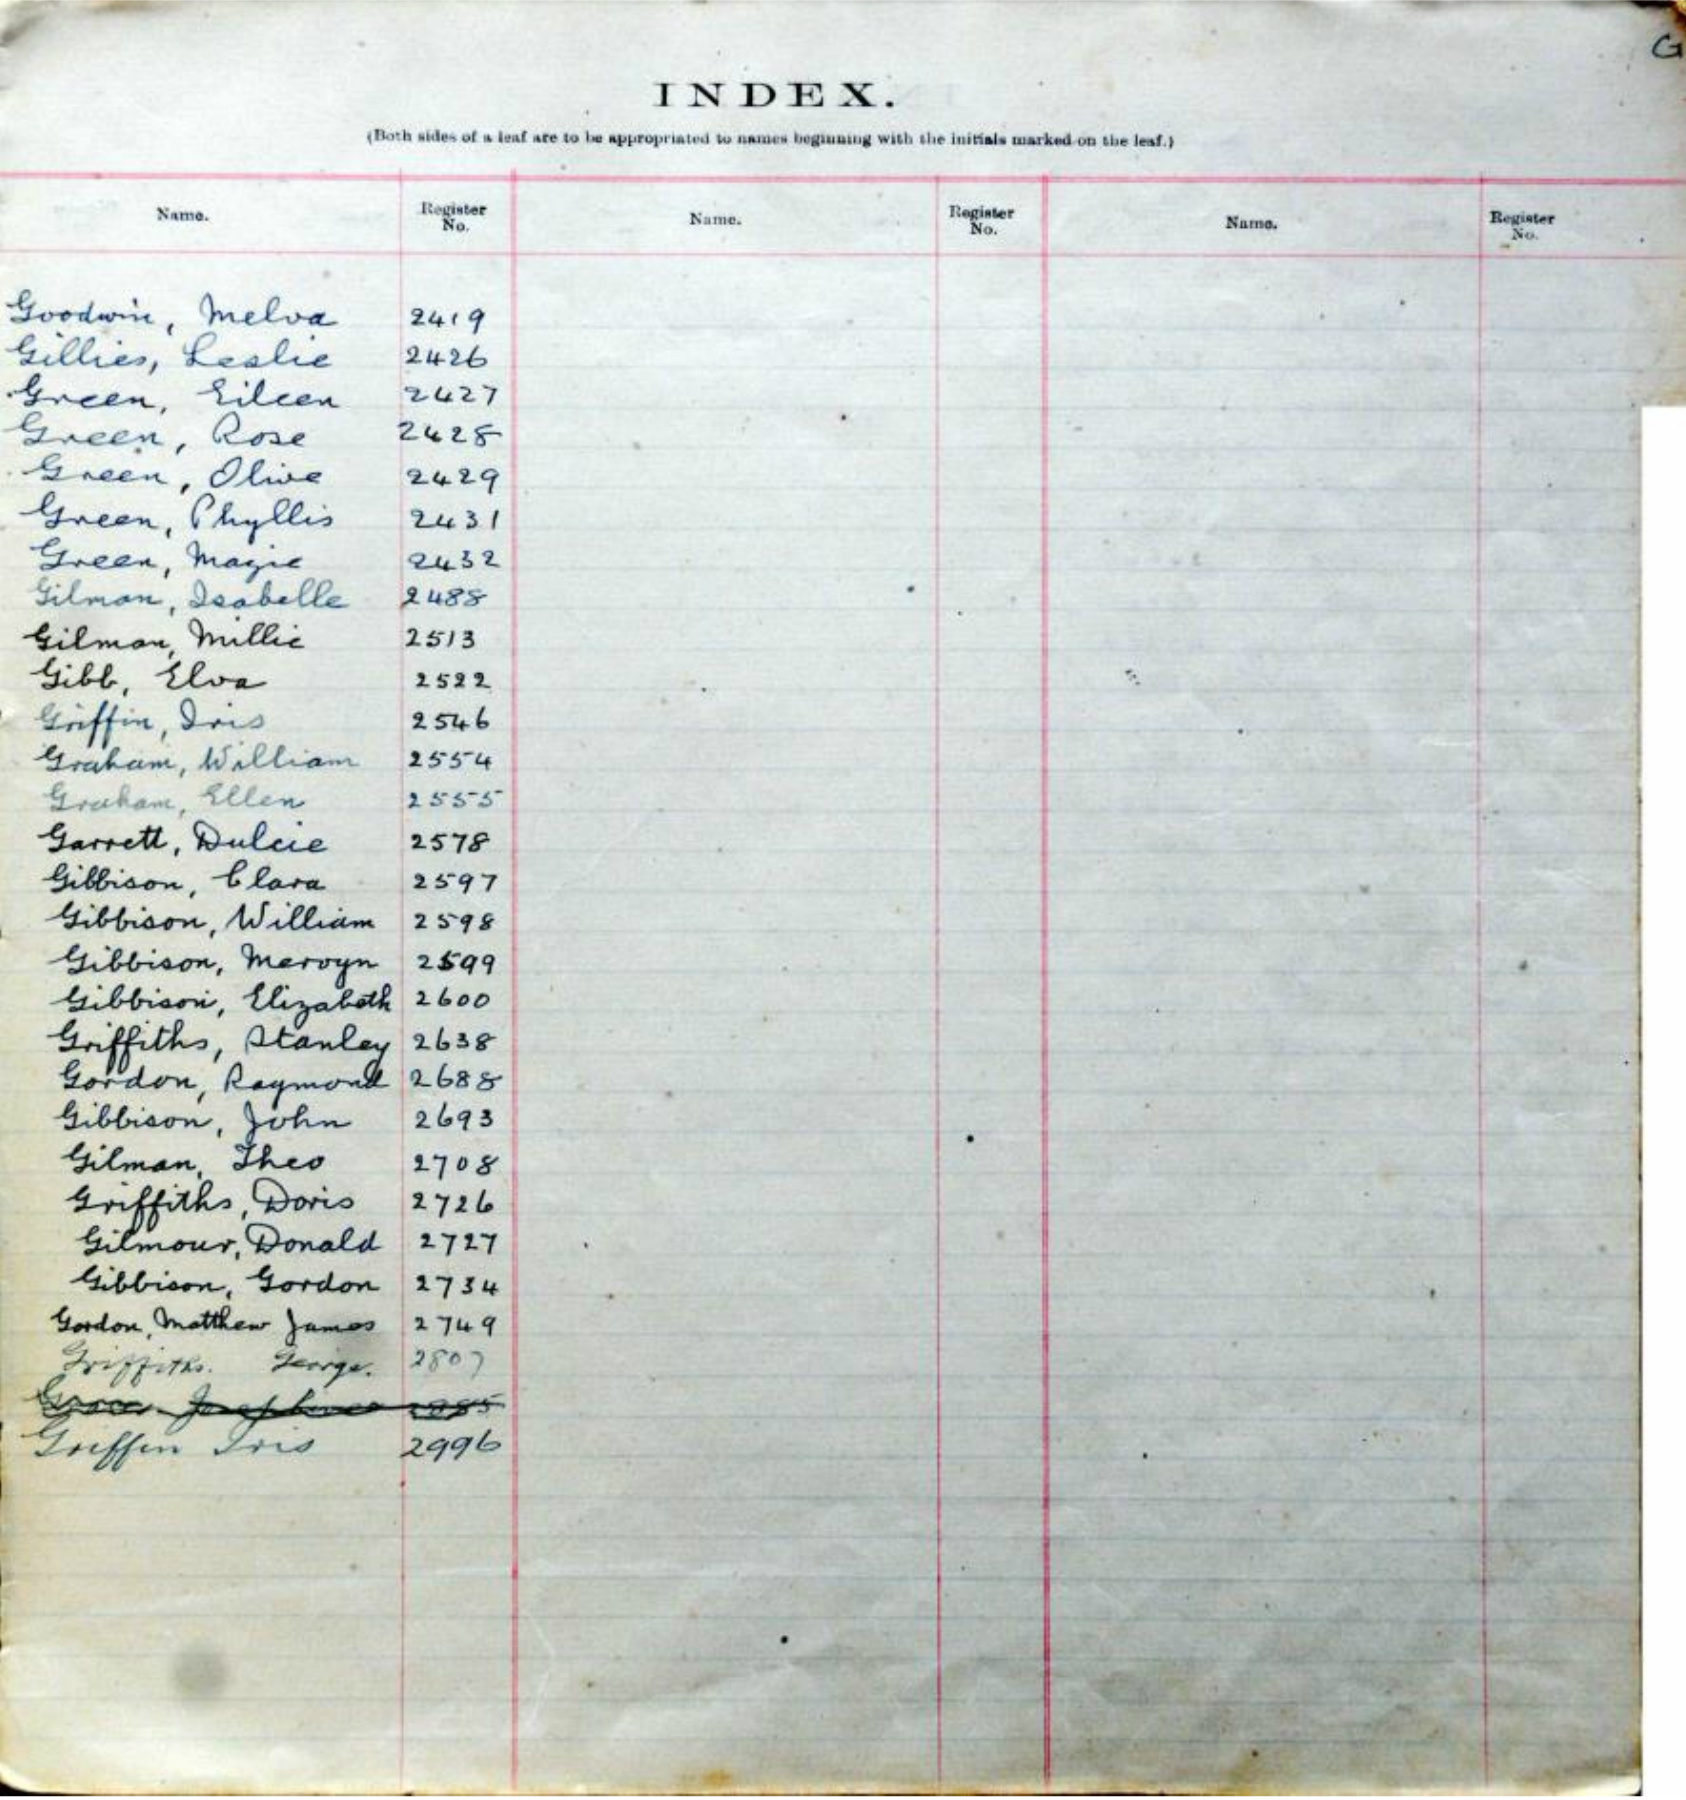 G
INDEX.
(Both sides of a leaf are to be appropriated to names beginning with the initials marked on the leaf.)
Name. Register No. Name. Register No. Name. Register No.
Goodwin, Melva 2419
Gillies, Leslie 2426
Green, Eileen 2427
Green, Rose 2428
Green, Olive 2429
Green, Phyllis 2431
Green, Mazie 2432
Gilman, Isabelle 2488
Gilman, Millie 2513
Gibb, Elva 2522
Griffin, Iris 2546
Graham, William 2554
Graham, Ellen 2555
Garrett, Dulcie 2578
Gibbison, Clara 2597
Gibbison, William 2598
Gibbison, Mervyn 2599
Gibbison, Elizabeth 2600
Griffiths, Stanley 2638
Gordon, Raymond 2688
Gibbison, John 2693
Gilman, Theo 2708
Griffiths, Doris 2726
Gilmour, Donald 2727
Gibbison, Gordon 2734
Gordon, Matthew James 2749
Griffiths. George. 2807
Griffin Iris 2996